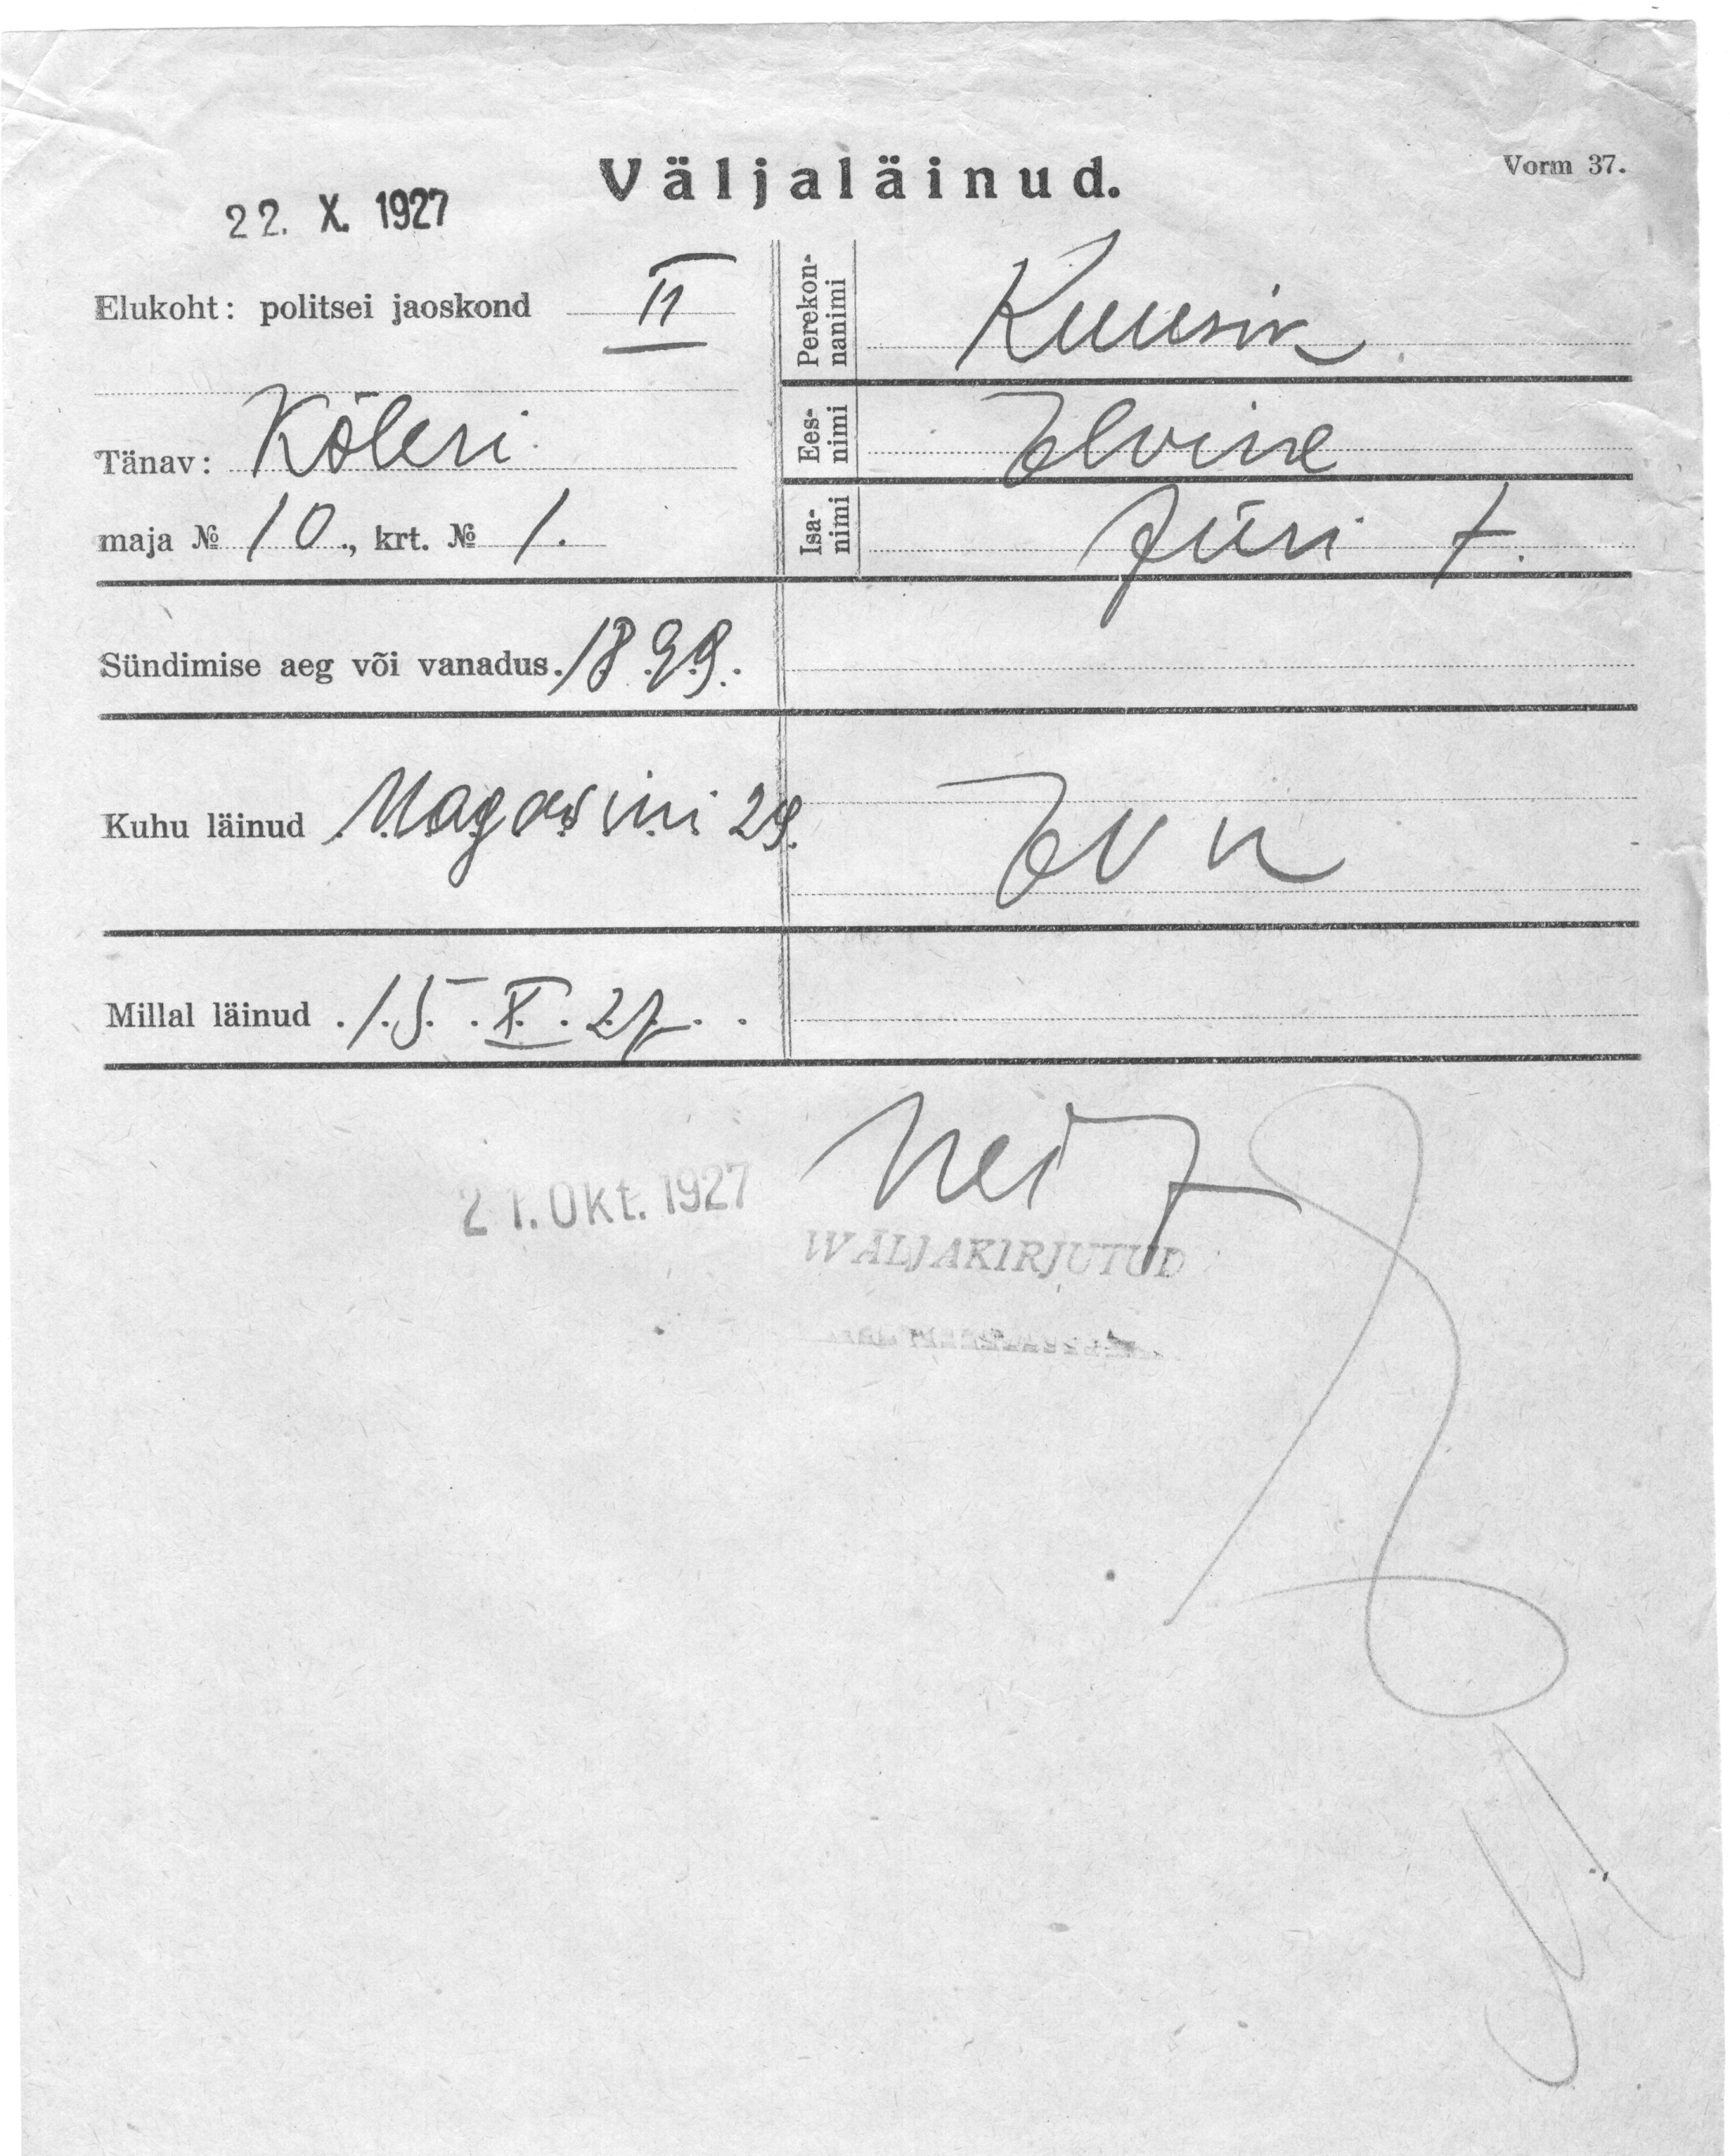 Väljaläinud.
Vorm 37.
22. X. 1927
Elukoht: politsei jaoskond II
Tänav: Köleri
maja № 10., krt. № 1.
Perekon-
nanimi
Kuusik
Ees-
nimi
Elviine
Isa-
nimi
Jüri t.
Sündimise aeg või vanadus. 1899.
Kuhu läinud Magasini 29.
Millal läinud 15. X. 27.
21. Okt. 1927
WÄLJAKIRJUTUD